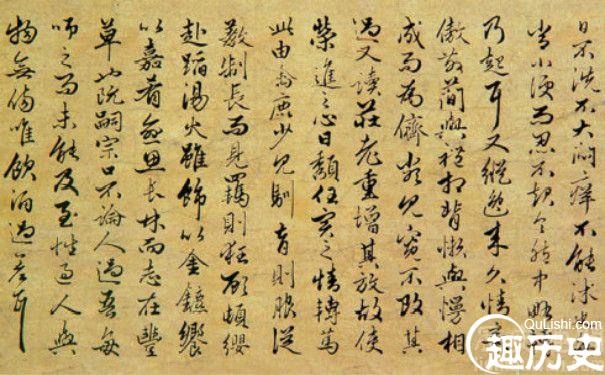 日不洗不大悶癢不能沐
常小便而忍不起令胞中略
乃起耳又縱逸來久情意
傲散簡與礼相背懶與慢相
成而為儕類見寬不攻其
過又讀莊老重增其放故使
榮進之心日頹任實之情轉篤
此由禽鹿少見馴育則服從
教制長而見羈則狂顧頓纓
赴蹈湯火雖飾以金鑣饗
以嘉肴愈思長林而志在豐
草也阮嗣宗口不論人過吾每
師之而未能及至性過人與
物無傷唯飲酒過差耳
QuLiShi.com
趣历史